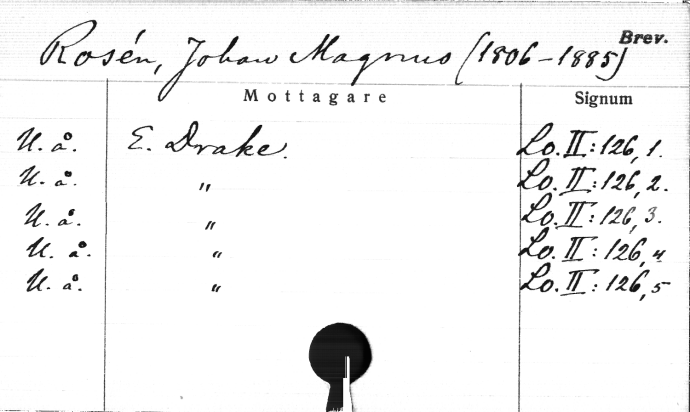 Brev.
Rosén, Johan Magnus (1806-1885)
Mottagare Signum
U. å. E. Drake. Lo. II: 126, 1.
U. å. " Lo. II: 126, 2.
U. å. " Lo. II: 126, 3.
U. å. " Lo. II: 126, 4
U. å. " Lo. II: 126, 5